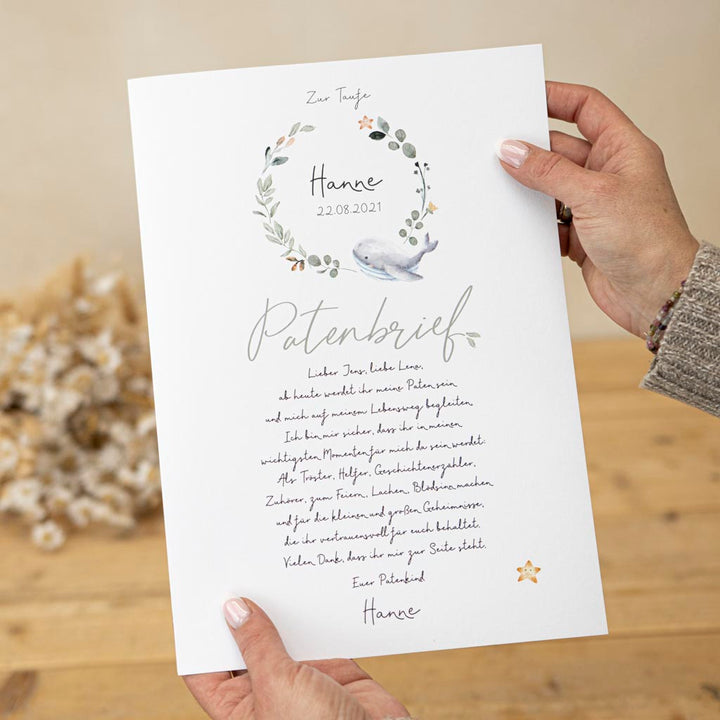 Zur Taufe
Hanne
22.08.2021
Patenbrief
Lieber Jens, liebe Lena,
ab heute werdet ihr meine Paten sein
und mich auf meinem Lebensweg begleiten.
Ich bin mir sicher, dass ihr in meinen
wichtigsten Momenten für mich da sein werdet:
Als Tröster, Helfer, Geschichtenerzähler,
Zuhörer, zum Feiern, Lachen, Blödsinn machen
und für die kleinen und großen Geheimnisse,
die ihr vertrauensvoll für euch behaltet.
Vielen Dank, dass ihr mir zur Seite steht.
Euer Patenkind
Hanne